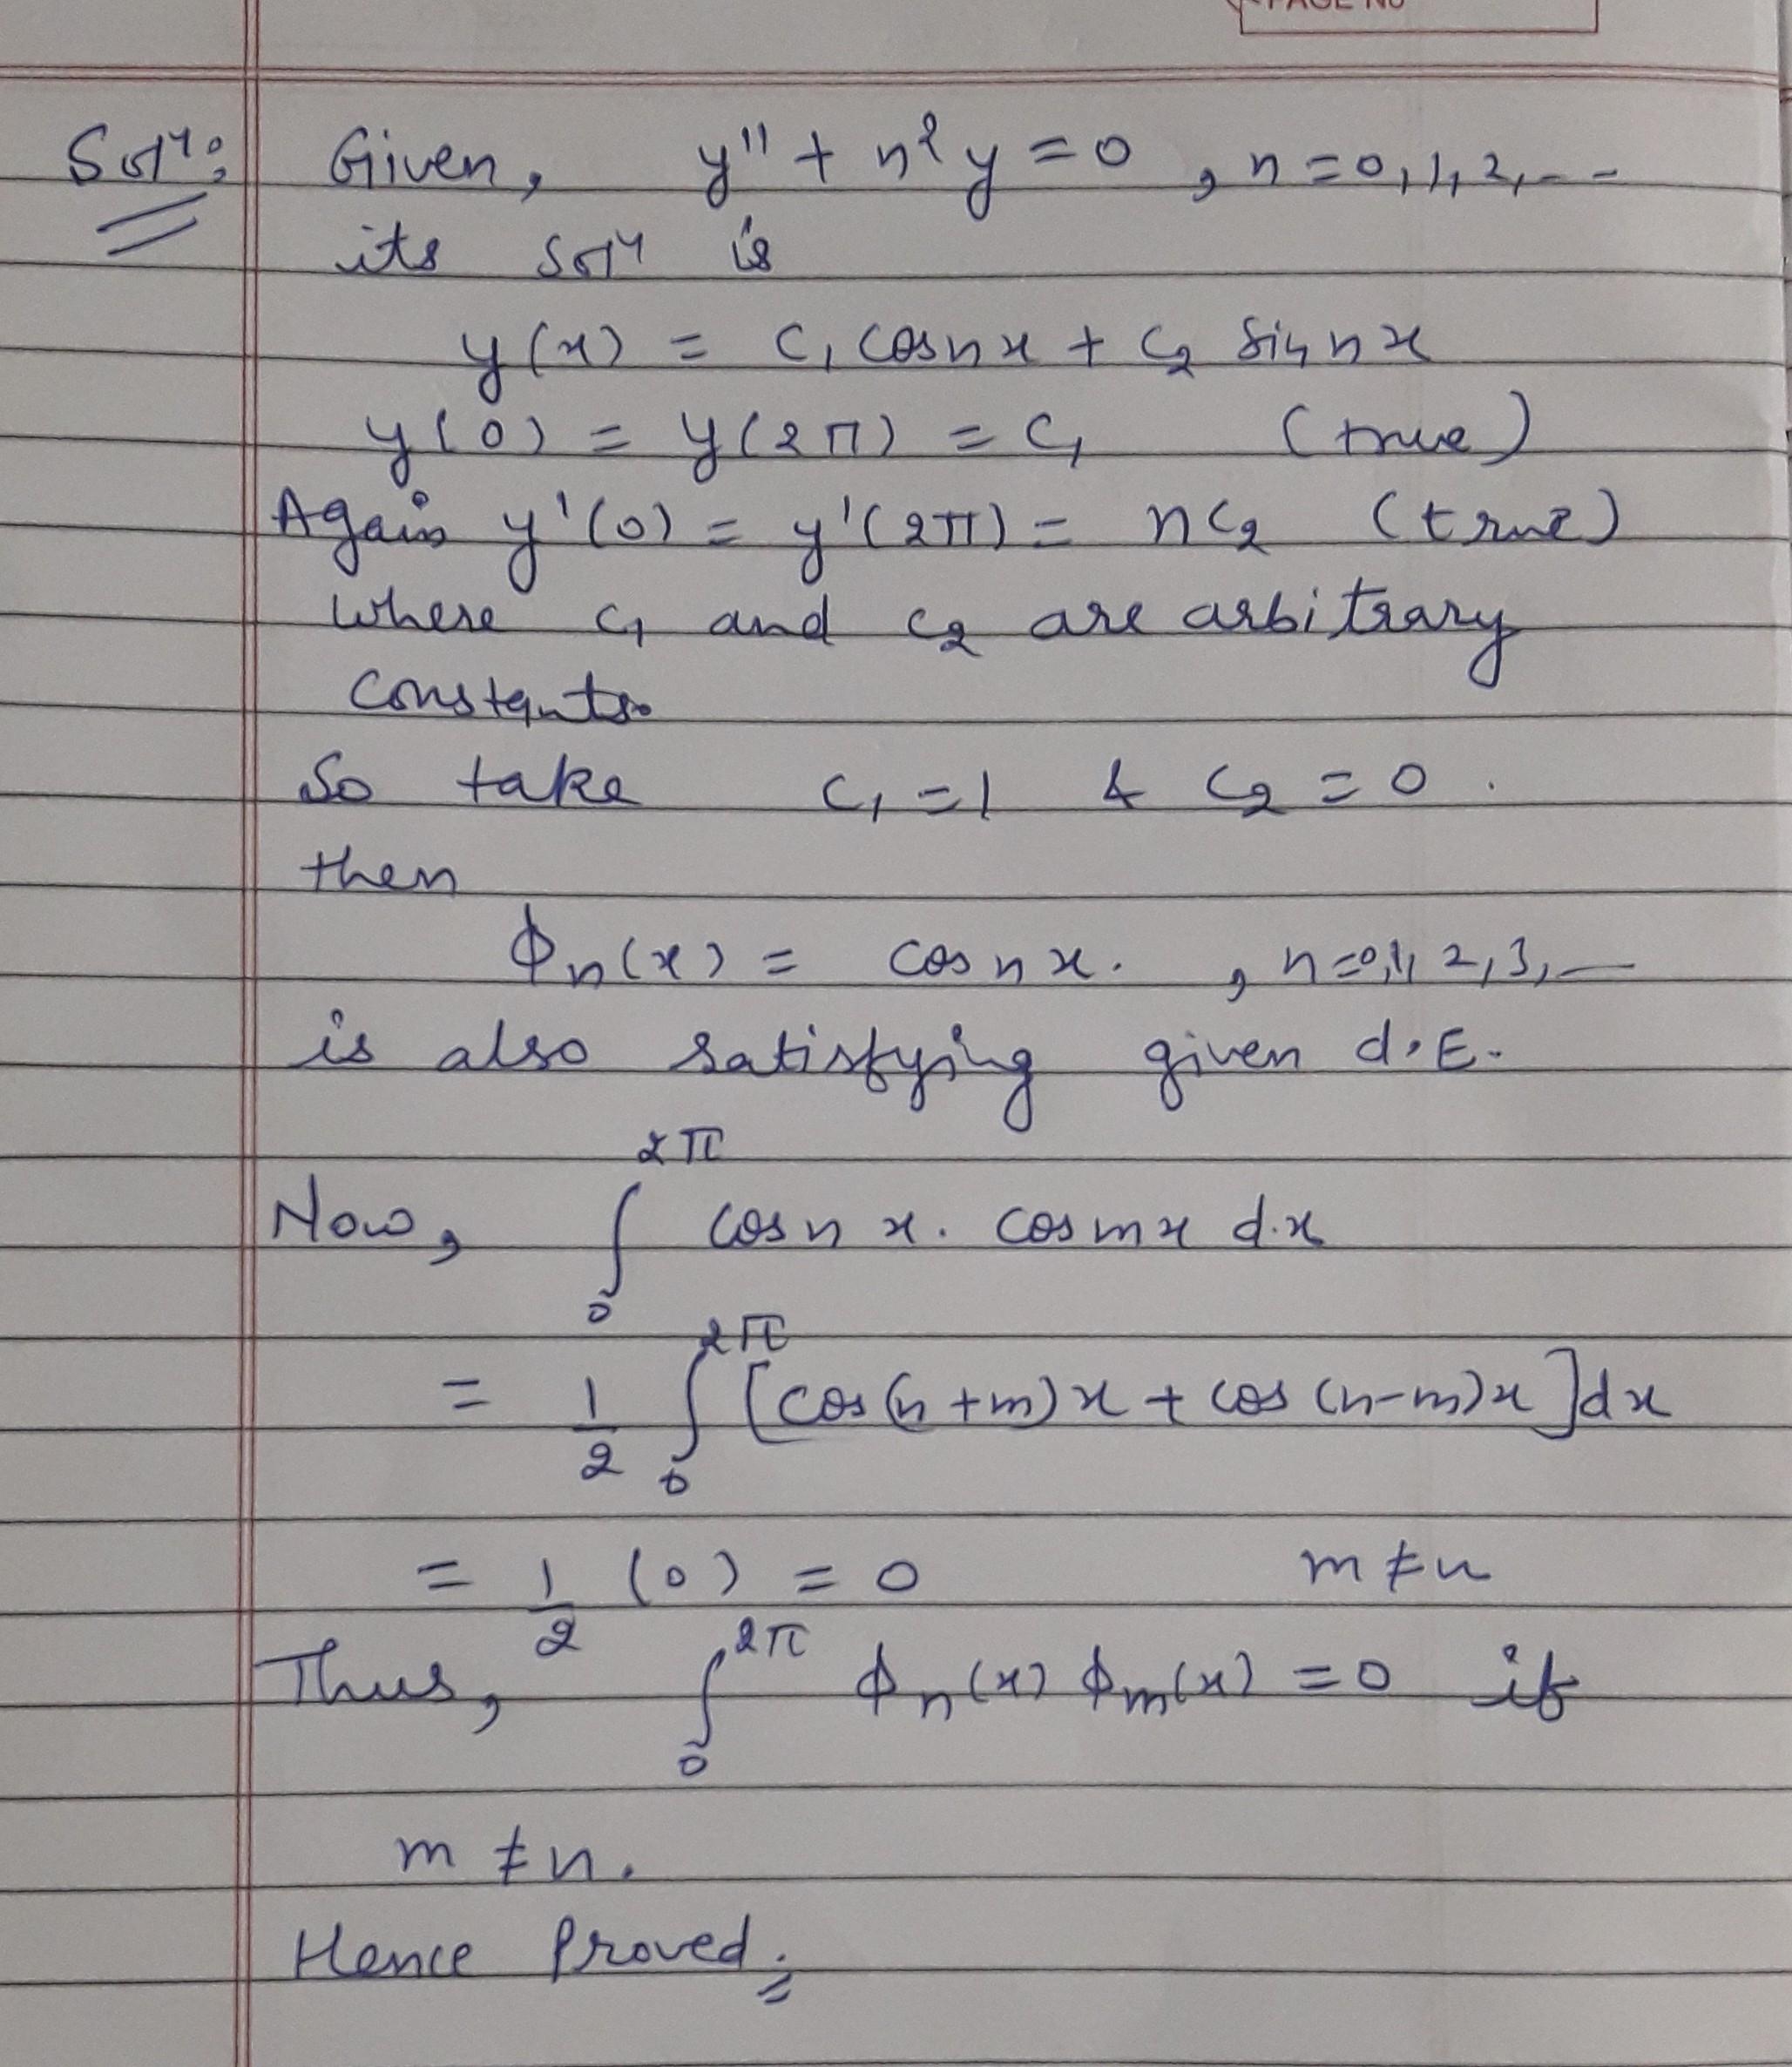 PAGE No
Solⁿ: Given, y'' + n²y = 0, n = 0, 1, 2, ...
its solⁿ is
y(x) = C₁ cosnx + C₂ Sinnx
y(0) = y(2π) = C₁ (true)
Again y'(0) = y'(2π) = nC₂ (true)
where C₁ and C₂ are arbitrary
constants.
So take C₁ = 1 & C₂ = 0.
then
ϕₙ(x) = cosnx. , n=0,1, 2, 3, —
is also satisfying given d.E.
Now, ∫₀^{2π} cosnx. cosmx d.x
= 1/2 ∫₀^{2π} [cos(n+m)x + cos(n-m)x]dx
= 1/2 (0) = 0 m ≠ n
Thus, ∫₀^{2π} ϕₙ(x) ϕₘ(x) = 0 if
m ≠ n.
Hence Proved.